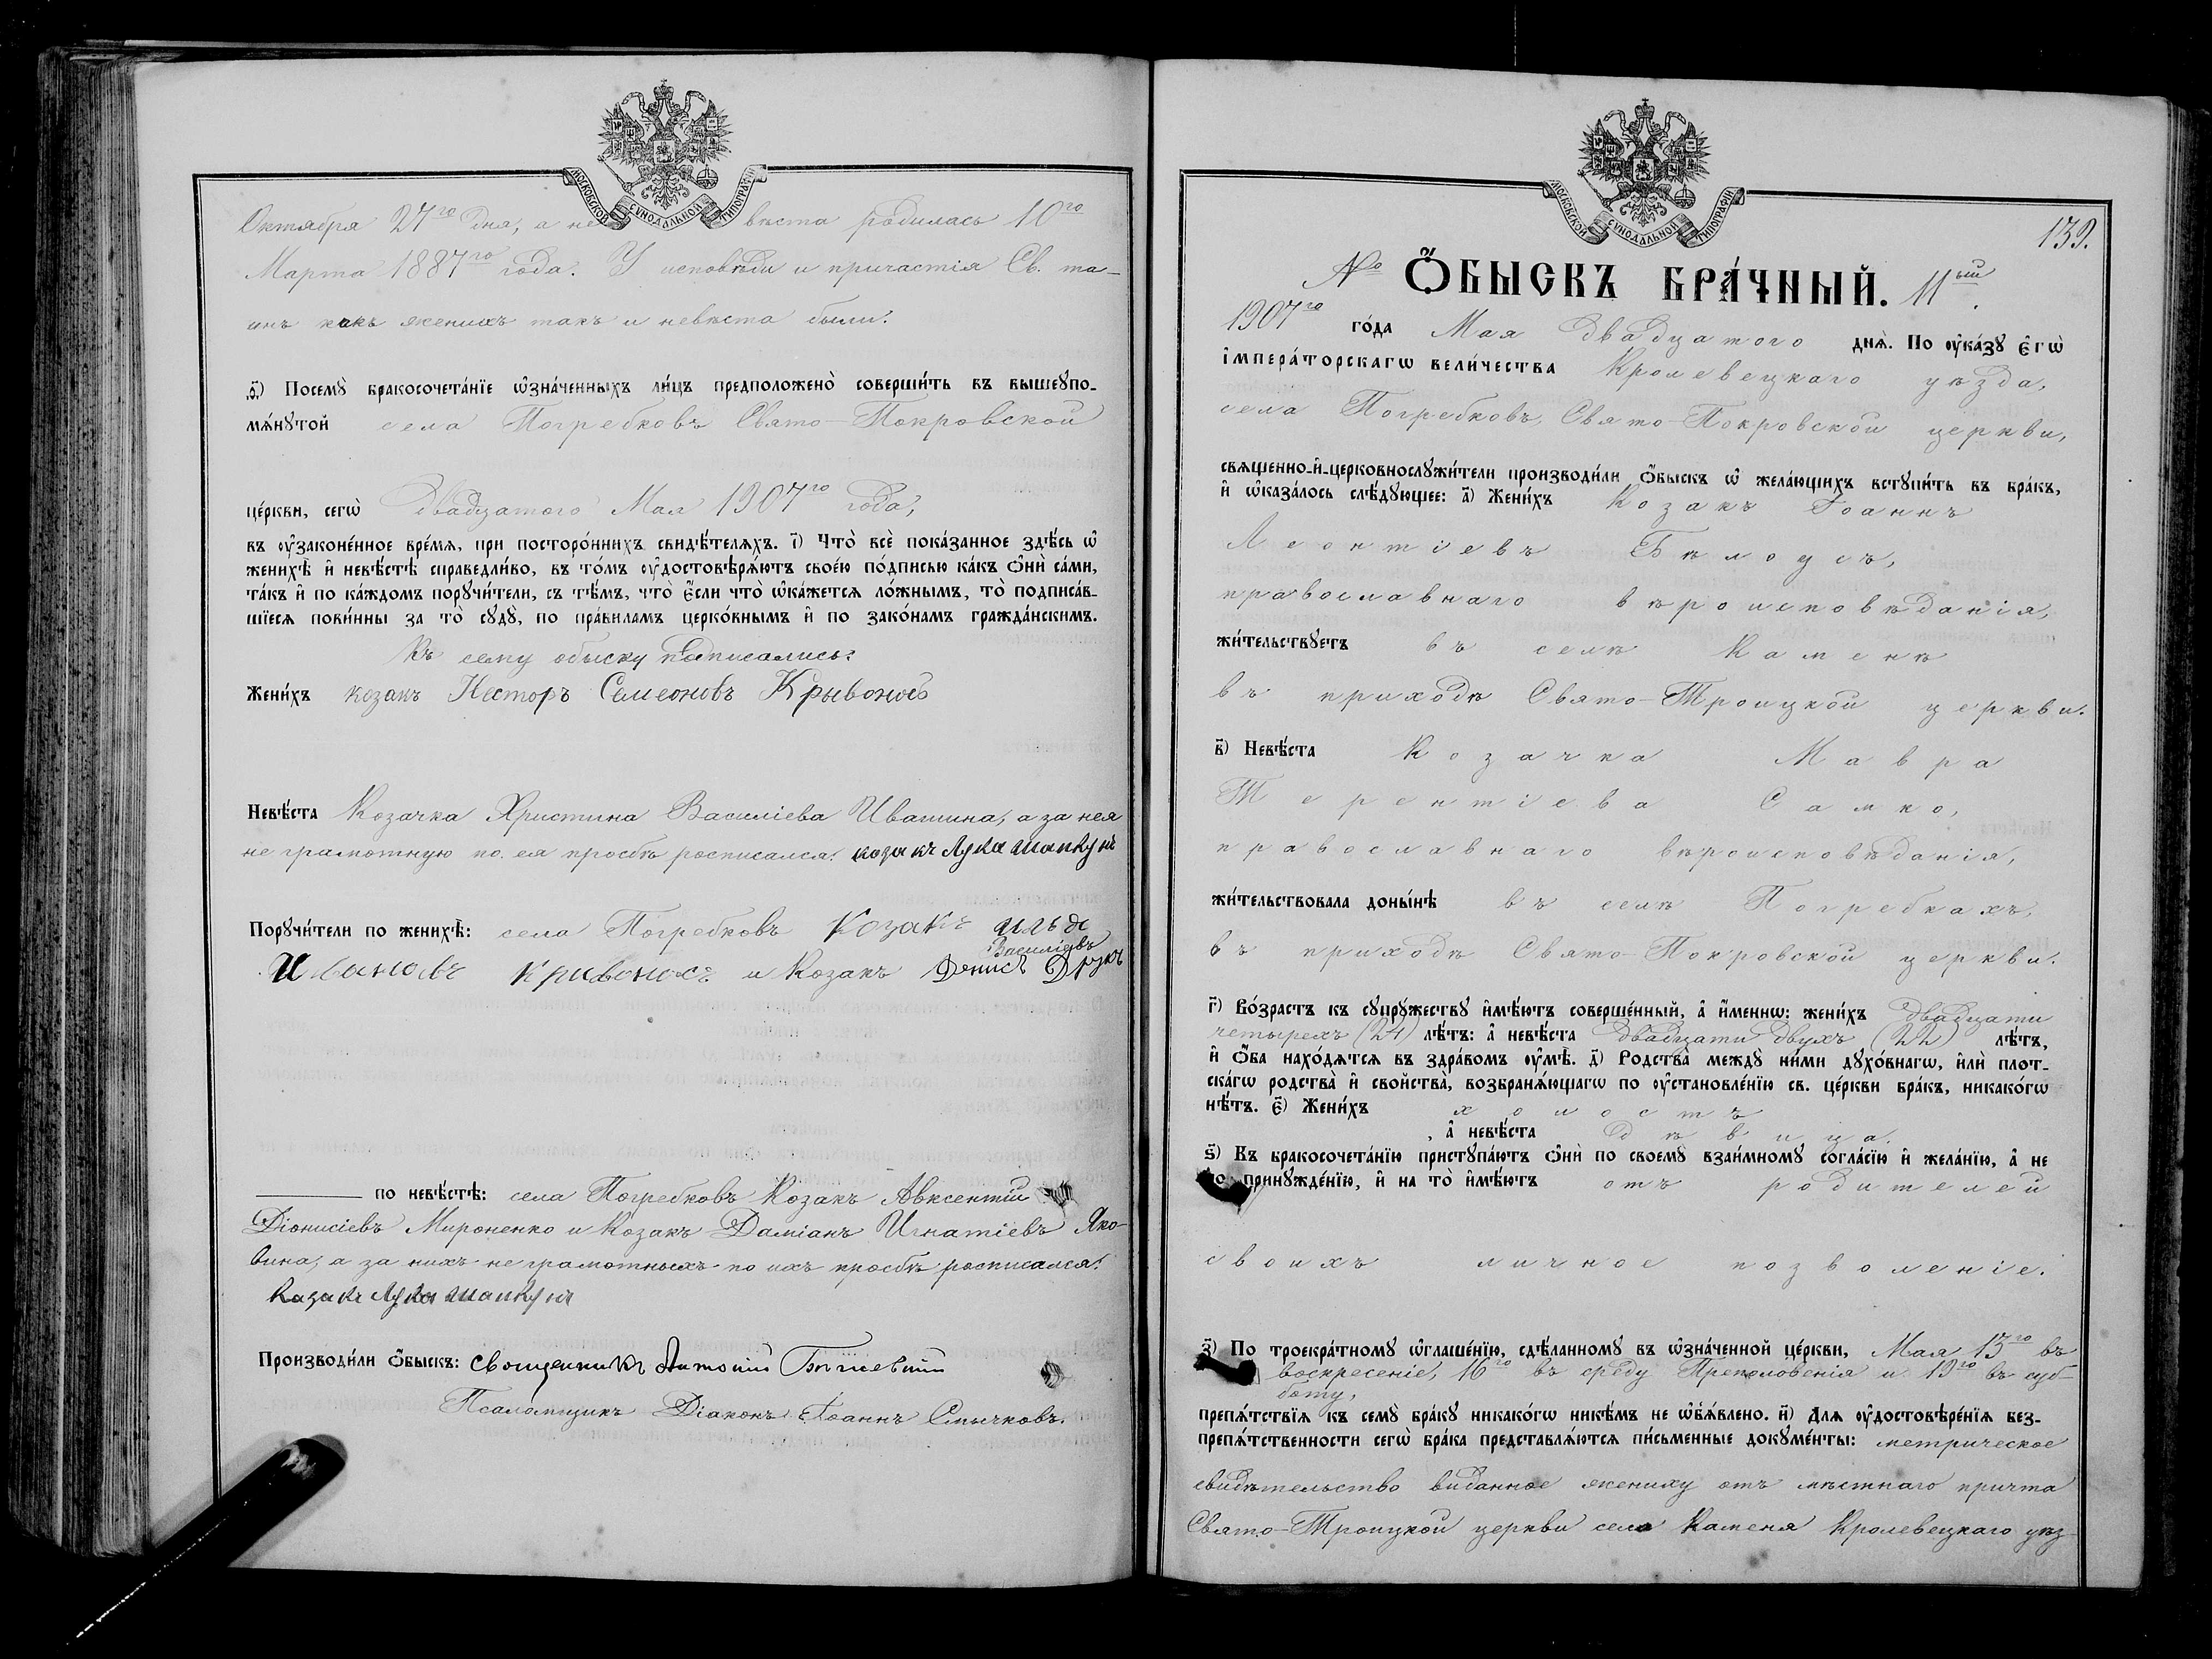 МОСКОВСКОЙ СѴНОДАЛЬНОЙ ТИПОГРАФІИ
Октября 27го дня, а невѣста родилась 10го
Марта 1887го года. У исповѣди и причастія Св. та-
инъ какъ женихъ такъ и невѣста были.
ѳ҃) Посемꙋ̀ бракосочета́нїе ѡ҆зна́ченныхъ ли́цъ предположено̀ соверши́ть въ вышеꙋпо-
мѧ́нꙋтой села Погребковъ Свято-Покровской
це́ркви, сегѡ̀ двадцатого Мая 1907го года,
въ ᲂу҆законе́нное вре́мѧ, при посторо́ннихъ свидѣ́телѧхъ. і҃) Что̀ всѐ пока́занное здѣ́сь ѡ҆
женихѣ̀ и҆ невѣ́стѣ справедли́во, въ то́мъ ᲂу҆достовѣрѧ́ютъ свое́ю по́дписью ка́къ ѻ҆нѝ са́ми,
та́къ и҆ по ка́ждомъ порꙋчи́тели, съ тѣ́мъ, что̀ є҆́сли что̀ ѡ҆ка́жетсѧ ло́жнымъ, то̀ подписа́в-
шїесѧ пови́нны за то̀ сꙋдꙋ̀, по пра́виламъ церко́внымъ и҆ по зако́намъ гражда́нскимъ.
Къ сему обыску подписались:
Жени́хъ козакъ Несторъ Семеоновъ Крывоносъ
Невѣ́ста Козачка Христина Василіева Ивашина, а за нея
не грамотную по ея просьбѣ росписался: козакъ Лука Шапкунъ
Порꙋчи́тели по женихѣ̀: села Погребковъ Козакъ
Василіевъ
Ивановъ Кривоносъ и Козакъ Денисъ
по невѣ́стѣ: села Погребковъ Козакъ Авксентій
Діонисіевъ Мироненко и Козакъ Даміанъ Игнатіевъ Яко-
вина, а за нихъ не грамотныхъ по ихъ просьбѣ росписался:
Козакъ Лука Шапкунъ
Производи́ли ѻ҆́быскъ: Священникъ Антоній
Псаломщикъ Діаконъ Іоаннъ Смычковъ.
МОСКОВСКОЙ СѴНОДАЛЬНОЙ ТИПОГРАФІИ
139.
№ Ѻ҆́БЫСКЪ БРА́ЧНЫЙ. 11ый.
1907го го́да Мая двадцатого днѧ̀. По ᲂу҆ка́зꙋ є҆гѡ̀
і҆мпера́торскагѡ вели́чества Кролевецкаго уѣзда,
села Погребковъ, Свято-Покровской церкви,
свѧщенно-и҆-церковнослꙋжи́тели производи́ли ѻ҆́быскъ ѡ҆ жела́ющихъ встꙋпи́ть въ бра́къ,
и҆ ѡ҆каза́лось слѣ́дꙋющее: а҃) Жени́хъ Козакъ Іоаннъ
Леонтіевъ Бѣлоусъ,
православнаго вѣроисповѣданія,
жи́тельствꙋетъ въ селѣ Каменѣ
въ приходѣ Свято-Троицкой церкви.
в҃) Невѣ́ста Козачка Мавра
Терентіева Самко,
православнаго вѣроисповѣданія,
жи́тельствовала доны́нѣ въ селѣ Погребкахъ,
въ приходѣ Свято-Покровской церкви.
г҃) Во́зрастъ къ сꙋпрꙋ́жествꙋ и҆мѣ́ютъ соверше́нный, а҆ и҆́меннѡ: жени́хъ двадцати
четырехъ (24) лѣ́тъ: а҆ невѣ́ста двадцати двухъ (22) лѣ́тъ,
и҆ ѻ҆́ба нахо́дѧтсѧ въ здра́вомъ ᲂу҆мѣ̀. д҃) Родства̀ междꙋ̀ ни́ми дꙋхо́внагѡ, и҆лѝ плот-
ска́гѡ родства̀ и҆ сво́йства̀, возбранѧ́ющагѡ по ᲂу҆становле́нїю св. це́ркви бра́къ, никако́гѡ
нѣ́тъ. є҃) Жени́хъ холостъ
, а҆ невѣ́ста дѣвица.
ѕ҃) Къ бракосочета́нїю пристꙋпа́ютъ ѻ҆нѝ по своемꙋ̀ взаи́мномꙋ согла́сїю и҆ жела́нїю, а҆ не
по принꙋжде́нїю, и҆ на то̀ и҆мѣ́ютъ отъ родителей
своихъ личное позволеніе.
з҃) По троекра́тномꙋ ѡ҆глаше́нїю, сдѣ́ланномꙋ въ ѡ҆зна́ченной це́ркви, Мая 13го въ
воскресеніе, 16го въ среду Преполовенія и 19го въ суб-
боту,
препѧ́тствїѧ къ семꙋ̀ бра́кꙋ никако́гѡ никѣ́мъ не ѡ҆б̾ѧ́влено. и҃) Длѧ ᲂу҆достовѣре́нїѧ без-
препѧ́тственности сегѡ̀ бра́ка представлѧ́ютсѧ пи́сьменные докꙋме́нты: метрическое
свидѣтельство виданное жениху отъ мѣстнаго причта
Свято-Троицкой церкви села Каменя Кролевецкаго уѣз-